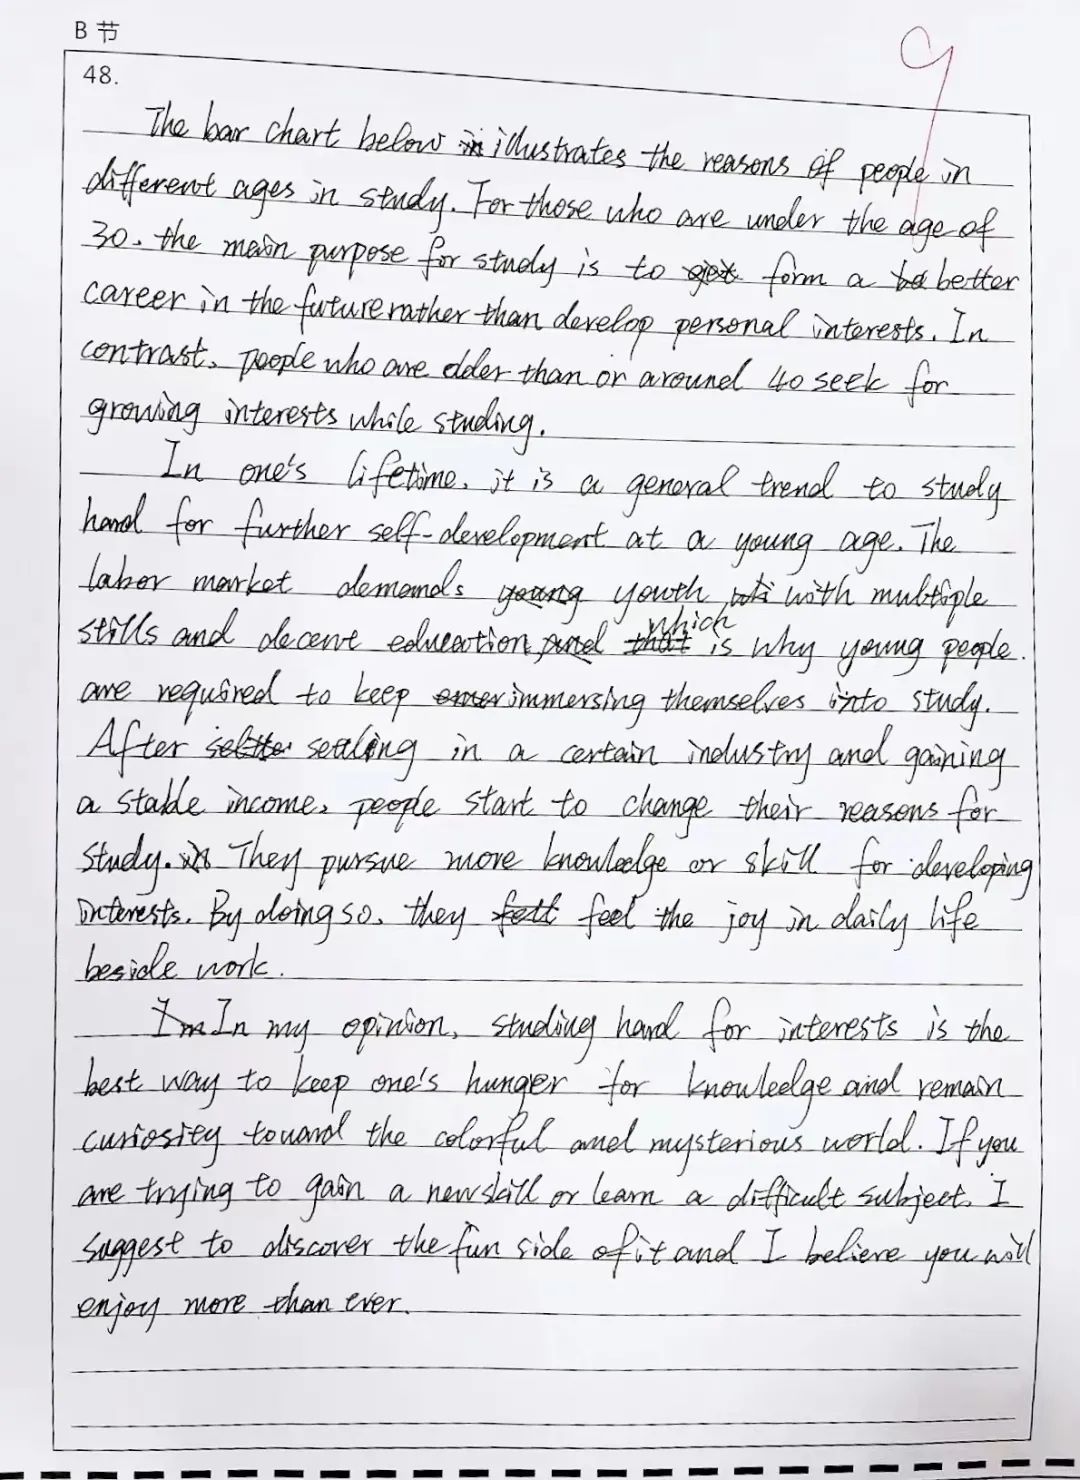 B 节
9
48.
The bar chart below illustrates the reasons of people in
different ages in study. For those who are under the age of
30, the main purpose for study is to form a better
career in the future rather than develop personal interests. In
contrast, people who are older than or around 40 seek for
growing interests while studing.
In one's lifetime, it is a general trend to study
hard for further self-development at a young age. The
labor market demands youth with multiple
skills and decent education, which is why young people
are required to keep immersing themselves into study.
After settling in a certain industry and gaining
a stable income, people start to change their reasons for
study. They pursue more knowledge or skill for developing
interests. By doing so, they feel the joy in daily life
beside work.
In my opinion, studing hard for interests is the
best way to keep one's hunger for knowledge and remain
curiosity toward the colorful and mysterious world. If you
are trying to gain a new skill or learn a difficult subject, I
suggest to discover the fun side of it and I believe you will
enjoy more than ever.